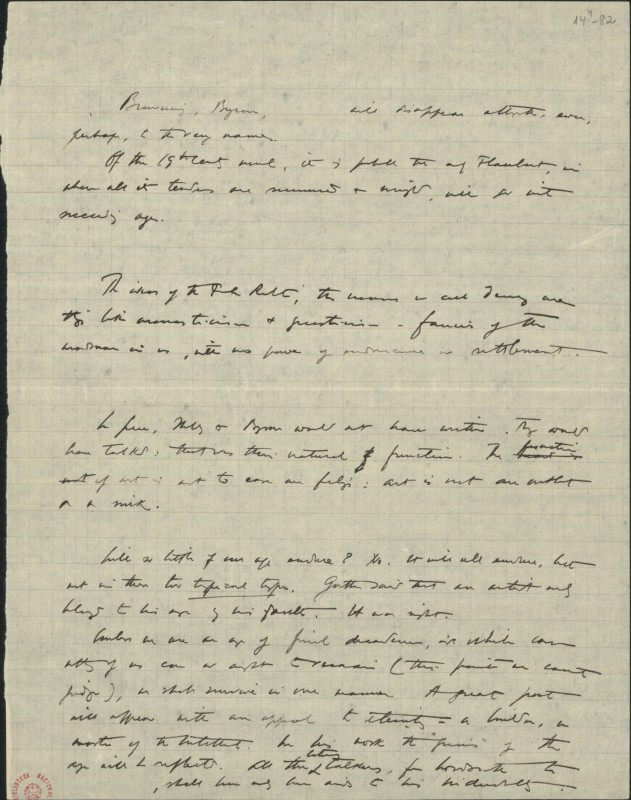 14⁴-82
Browning, Byron, will disappear altogether, even,
perhaps, to the very names.
Of the 19th century novel, it is probable that only Flaubert, in
whom all its tendencies are summed &, will go into
succeeding ages.
The ideas of the French Revolution, the we call Democracy are
things like & — fancies of the
madman in us, with no power of endurance or settlement.
Shelley or Byron would not have written. They would
have talked: that was their natural function. The function
of art is not to ease our feelings: art is not an outlet
or a sink.
Will so little of our age endure? No. It will all endure, but
not in these two typical types. Goethe said that an artist only
belongs to his age by his faults. He was right.
Unless we are an age of final decadence, in which case
of us can or ought to remain (this point we cannot
judge), we shall survive in one manner. A great poet
will appear with an appeal to eternity — a builder, a
master of the Intellect. In his work the genius of the
age will be reflected. All the talkers, from to
, shall have only been aids to his
BIBLIOTECA NACIONAL